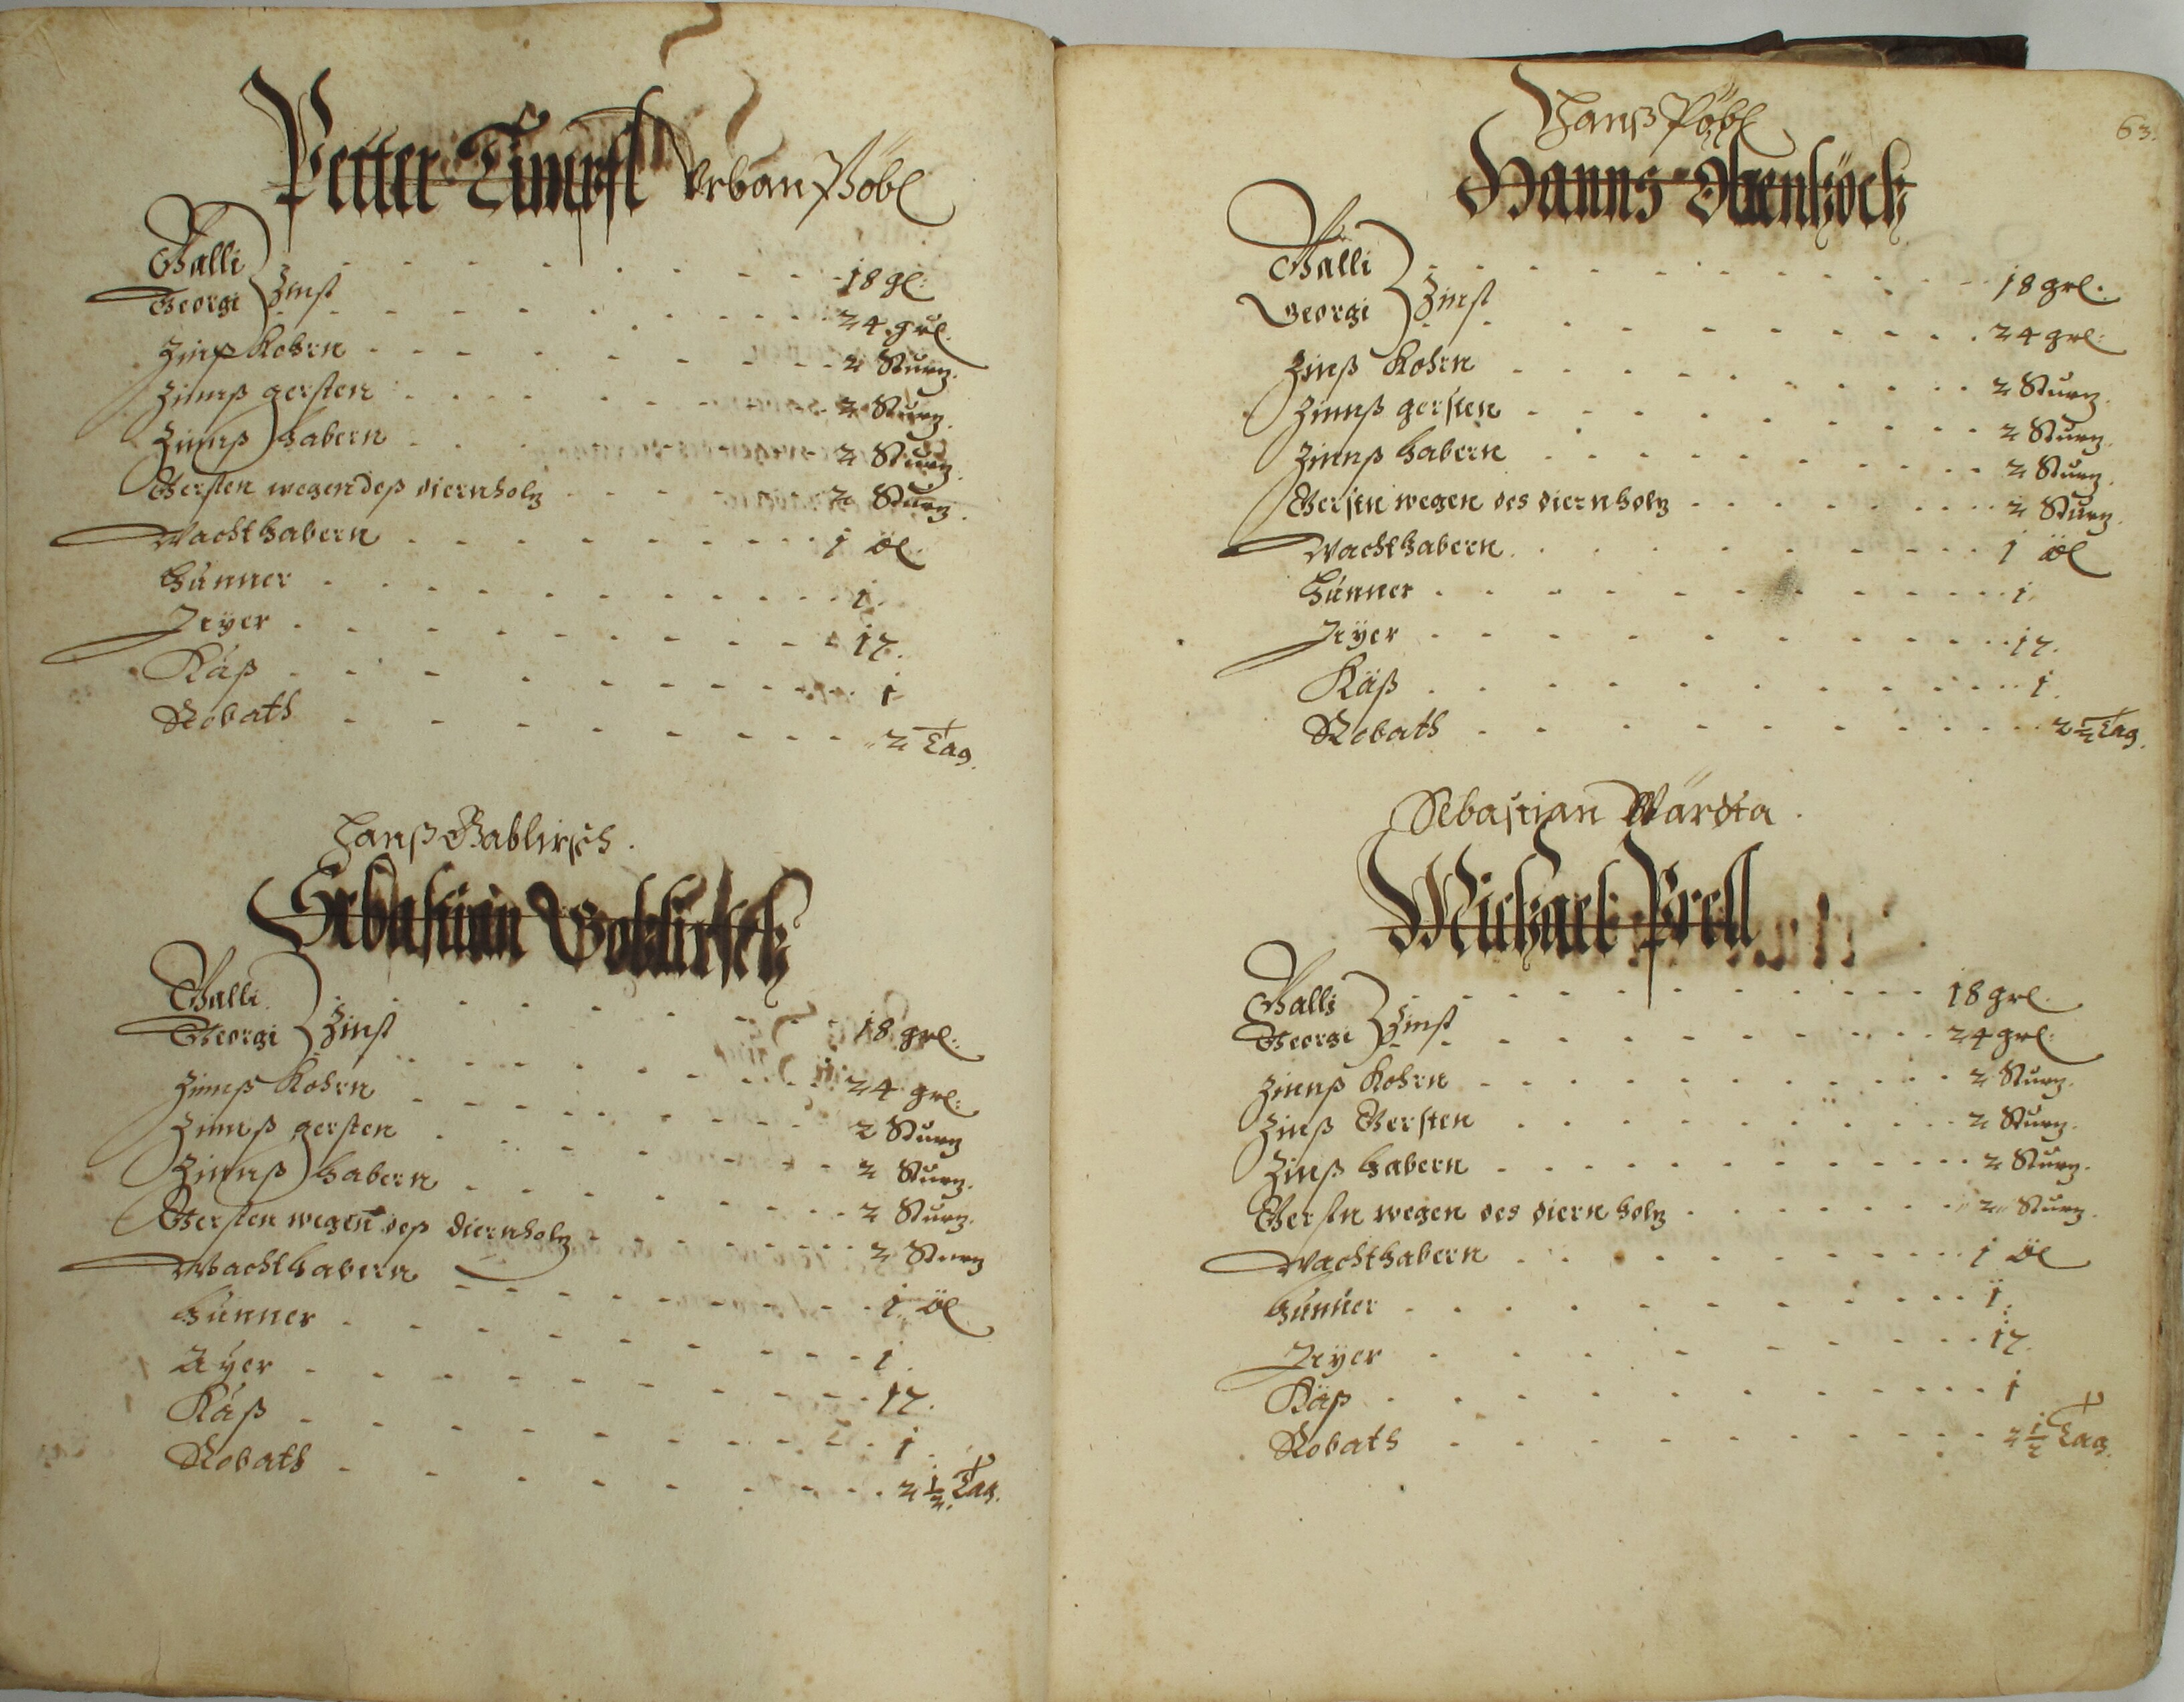 Petter Urban Pöbl
Galli
Georgi Zinß
18 gl:
24 grl.
Zinß Kohrn 2 Sturz.
Zinnß gersten 2 Sturz.
Zinnß habern 2 Sturz.
Gersten wegen deß diernholz 2 Sturz.
Wachthabern 1 öl.
Hünner 1.
Ayer 17.
Käß 1
Robath 2 Tag.
Hanß Gablirsch.
Sebastian Gablirsch
Galli
Georgi Zinß
18 grl:
24 grl:
Zinnß Kohrn 2 Sturz
Zinnß gersten 2 Sturz.
Zinnß habern 2 Sturz.
Gersten wegen deß diernholz 2 Sturz
Wachthabern 1 öl
Hünner 1.
Ayer 17.
Käß 1.
Robath 2 1/2 Tag.
63.
Hanß Pöbl
Hanns
Galli
Georgi Zinß
18 grl.
24 grl:
Zinß Kohrn 2 Sturz.
Zinnß gersten 2 Sturz.
Zinnß habern 2 Sturz.
Gersten wegen des diernholz 2 Sturz.
Wachthabern 1 öl
Hünner 1
Ayer 17.
Käß 1.
Robath 2 1/2 Tag.
Sebastian
Michael Prell
Galli
Georgi Zinß
18 grl.
24 grl:
Zinnß Kohrn 2 Sturz.
Zinß Gersten 2 Sturz.
Zinß habern 2 Sturz.
Gerstn wegen des diern holz 2 Sturz.
Wachthabern 1 öl
Hünner 1.
Ayer 17.
Käß 1
Robath 2 1/2 Tag.